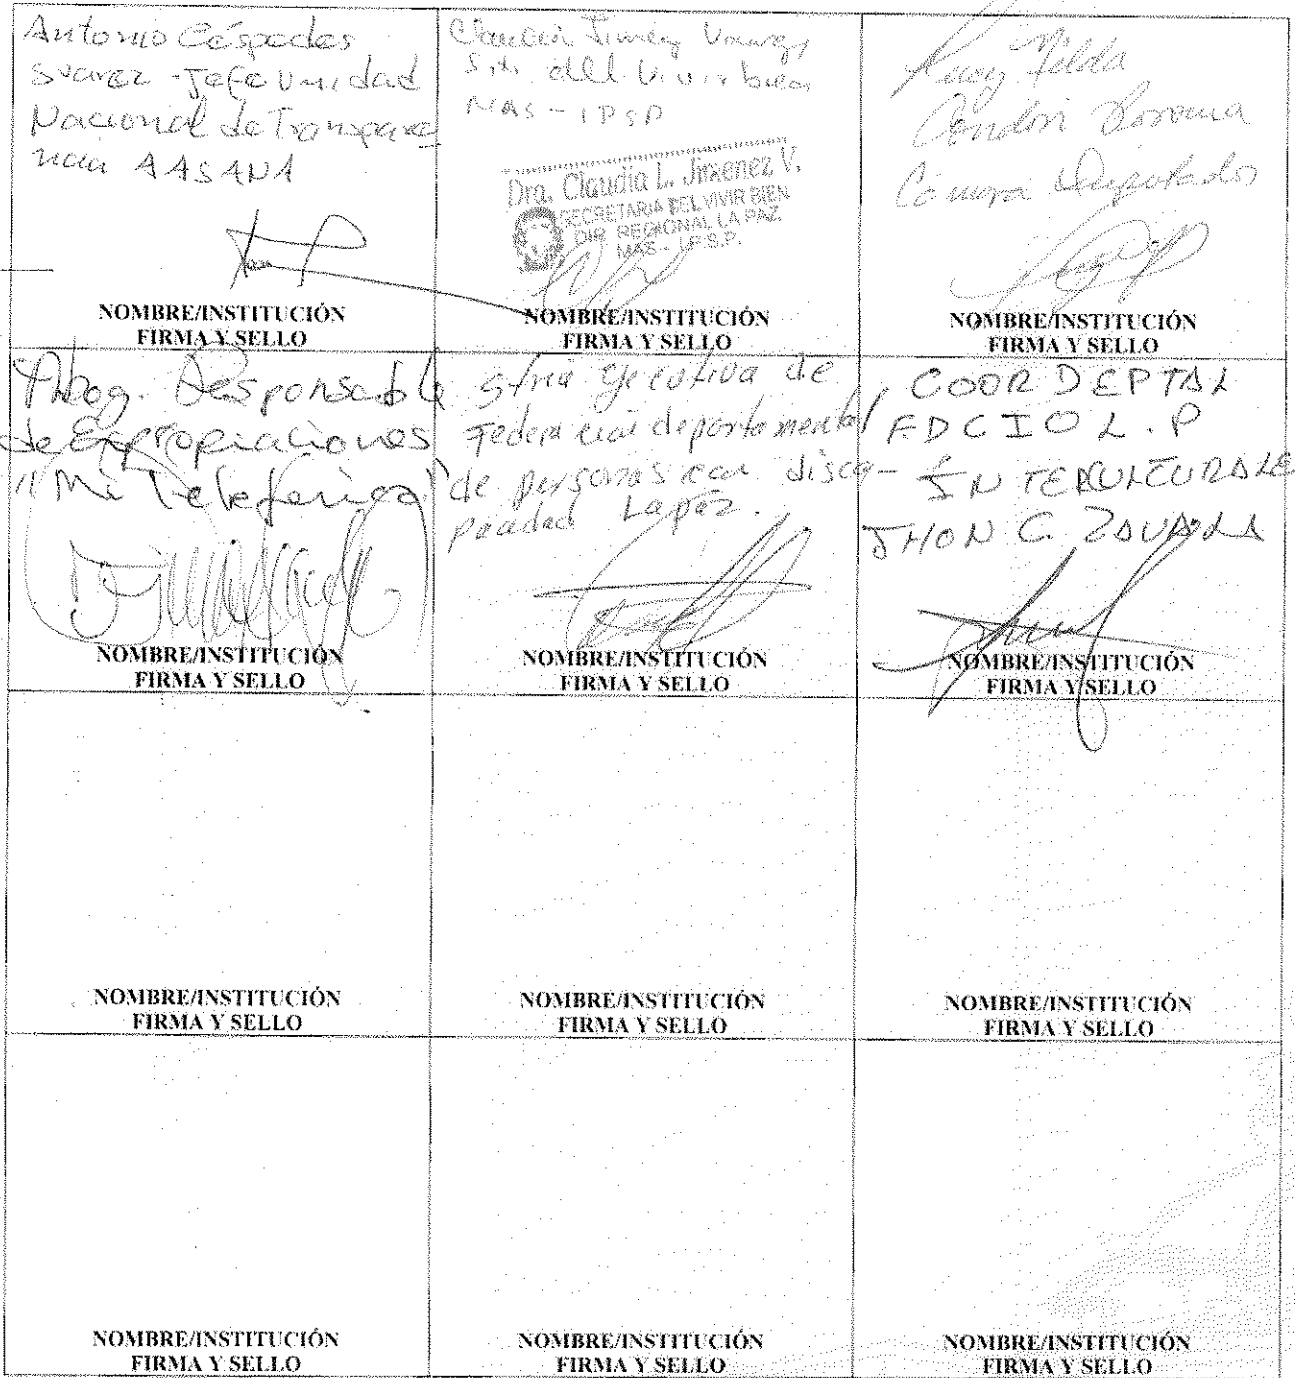 Antonio Céspedes
Suarez - Jefe Unidad
Nacional de Transpare
ncia AASANA
NOMBRE/INSTITUCIÓN
FIRMA Y SELLO
Claudia Jimenez
del Vivir bien
MAS - IPSP
Dra. Claudia L. Jimenez V.
SECRETARIA DEL VIVIR BIEN
DIR. REGIONAL LA PAZ
MAS - I.P.S.P.
NOMBRE/INSTITUCIÓN
FIRMA Y SELLO
Condori
Cámara Diputados
NOMBRE/INSTITUCIÓN
FIRMA Y SELLO
Abog. Responsable
de Expropiaciones
"Mi Teleferico"
NOMBRE/INSTITUCIÓN
FIRMA Y SELLO
Stria ejecutiva de
Federacion departamental
de personas con disca-
pacidad La paz.
NOMBRE/INSTITUCIÓN
FIRMA Y SELLO
COOR DEPTAL
F.D C I O L . P
INTERCULTURALE
JHON C. ZAVALA
NOMBRE/INSTITUCIÓN
FIRMA Y SELLO
NOMBRE/INSTITUCIÓN
FIRMA Y SELLO
NOMBRE/INSTITUCIÓN
FIRMA Y SELLO
NOMBRE/INSTITUCIÓN
FIRMA Y SELLO
NOMBRE/INSTITUCIÓN
FIRMA Y SELLO
NOMBRE/INSTITUCIÓN
FIRMA Y SELLO
NOMBRE/INSTITUCIÓN
FIRMA Y SELLO